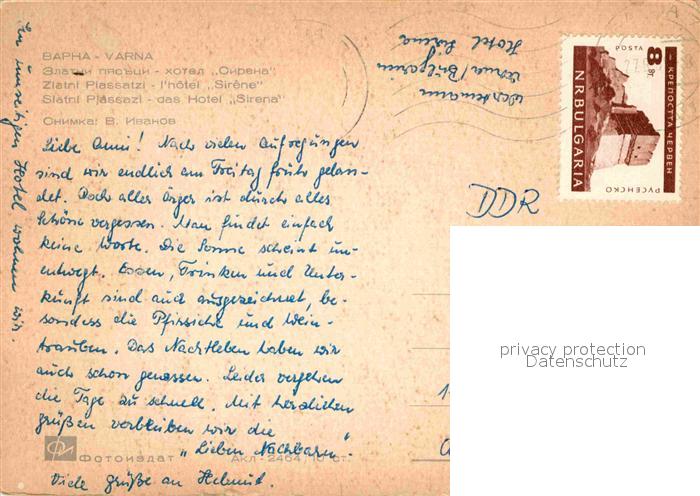 ВАРНА - VARNA
Златни пясъци - хотел „Сирена“
Zlatni Plassatzi - l'hôtel „Sirène“
Slatni Plássazi - das Hotel „Sirena“
Снимка: В. Иванов
Liebe Omi! Nach vielen Aufregungen
sind wir endlich am Freitag früh gelan-
det. Doch aller Ärger ist durch alles
Schöne vergessen. Man findet einfach
keine Worte. Die Sonne scheint un-
entwegt. Essen, Trinken und Unter-
kunft sind auch ausgezeichnet, be-
sonders die Pfirsiche und Wein-
trauben. Das Nachtleben haben wir
auch schon genossen. Leider vergehen
die Tage zu schnell. Mit herzlichen
grüßen verbleiben wir die
„Lieben Nachbarn“
Viele grüße an Helmut.
Фотоиздат Акл - 2464/10 ст.
Im umseitigen Hotel wohnen wir.
Varna/Bulgarien
Hotel Sirena
8 ст.
КРЕПОСТТА ЧЕРВЕН
РУСЕНСКО
NRBULGARIA
DDR
privacy protection
Datenschutz